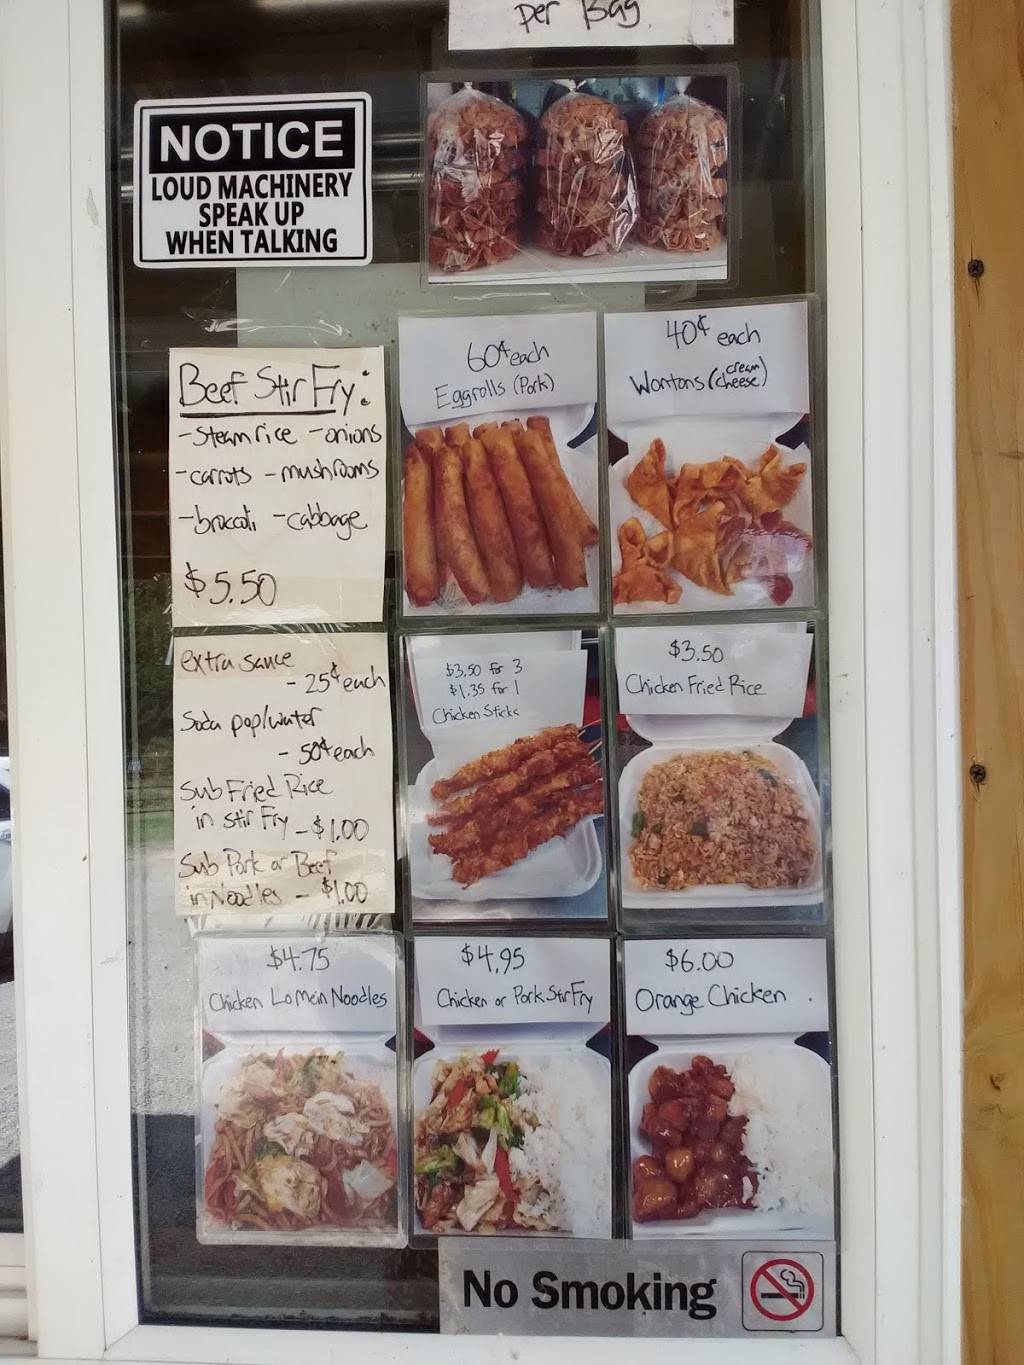 per Bag.
NOTICE
LOUD MACHINERY
SPEAK UP
WHEN TALKING
60¢ each
Eggrolls (Pork)
40¢ each
Wontons (cream cheese)
Beef Stir Fry:
-Steam rice -onions
-carrots -mushrooms
-broccoli -cabbage
$5.50
extra sauce
- 25¢ each
Soda pop/water
- 50¢ each
Sub Fried Rice
in Stir Fry - $1.00
Sub Pork or Beef
in Noodles - $1.00
$3.50 for 3
$1.35 for 1
Chicken Sticks
$3.50
Chicken Fried Rice
$4.75
Chicken Lo Mein Noodles
$4.95
Chicken or Pork Stir Fry
$6.00
Orange Chicken
No Smoking